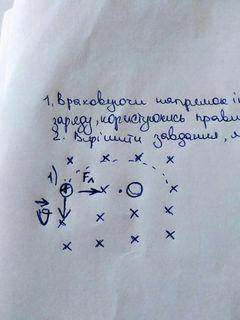 1. Враховуючи напрямок і
заряду, користуючись прави
2. Вирішити завдання,
1)
+ Fл
v